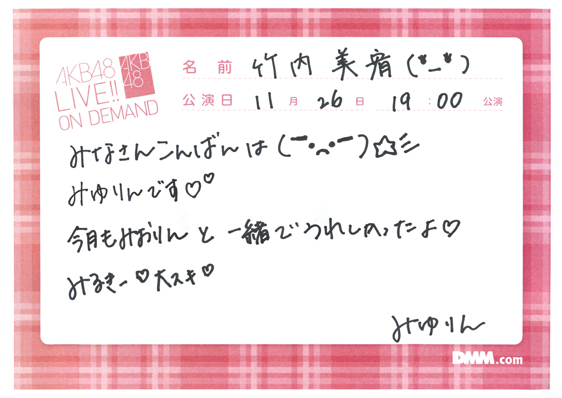 AKB48
LIVE!!
ON DEMAND
AKB
48
名前 竹内美宥(*_*)
公演日 11月26日 19:00公演
みなさんこんばんは(￣•⌢•￣)☆彡
みゆりんです♡♡
今月もみおりんと一緒でうれしかったよ♡
みるきー♡大スキ♡
みゆりん
DMM.com